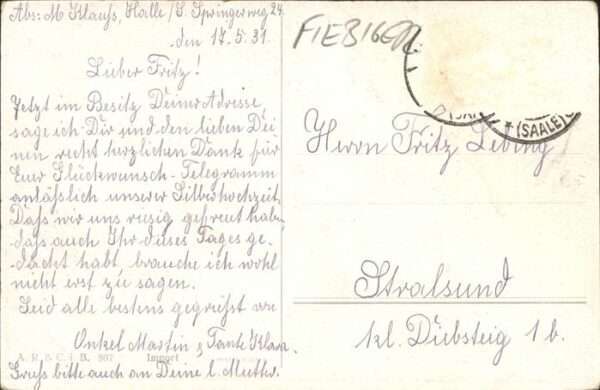 Abs: M Klauss, Halle/S. Springerweg 24
den 17.5.31.
Lieber Fritz!
Jetzt im Besitz Deiner Adresse,
sage ich Dir und den lieben Dei-
nen recht herzlichen Dank für
Eure Glückwunsch-Telegramm
anlässlich unserer Silberhochzeit.
Dass wir uns riesig gefreut haben
dass auch Ihr dieses Tages ge-
dacht habt, brauche ich wohl
nicht erst zu sagen.
Seid alle bestens gegrüsst von
Onkel Martin, Tante Klara.
Gruss bitte auch an Deine l. Mutter.
A. R. & C. i. B. 907 Import
FIEBIGER
* (SAALE)
Herrn Fritz Lebing
Stralsund
kl. Diebsteig 1b.